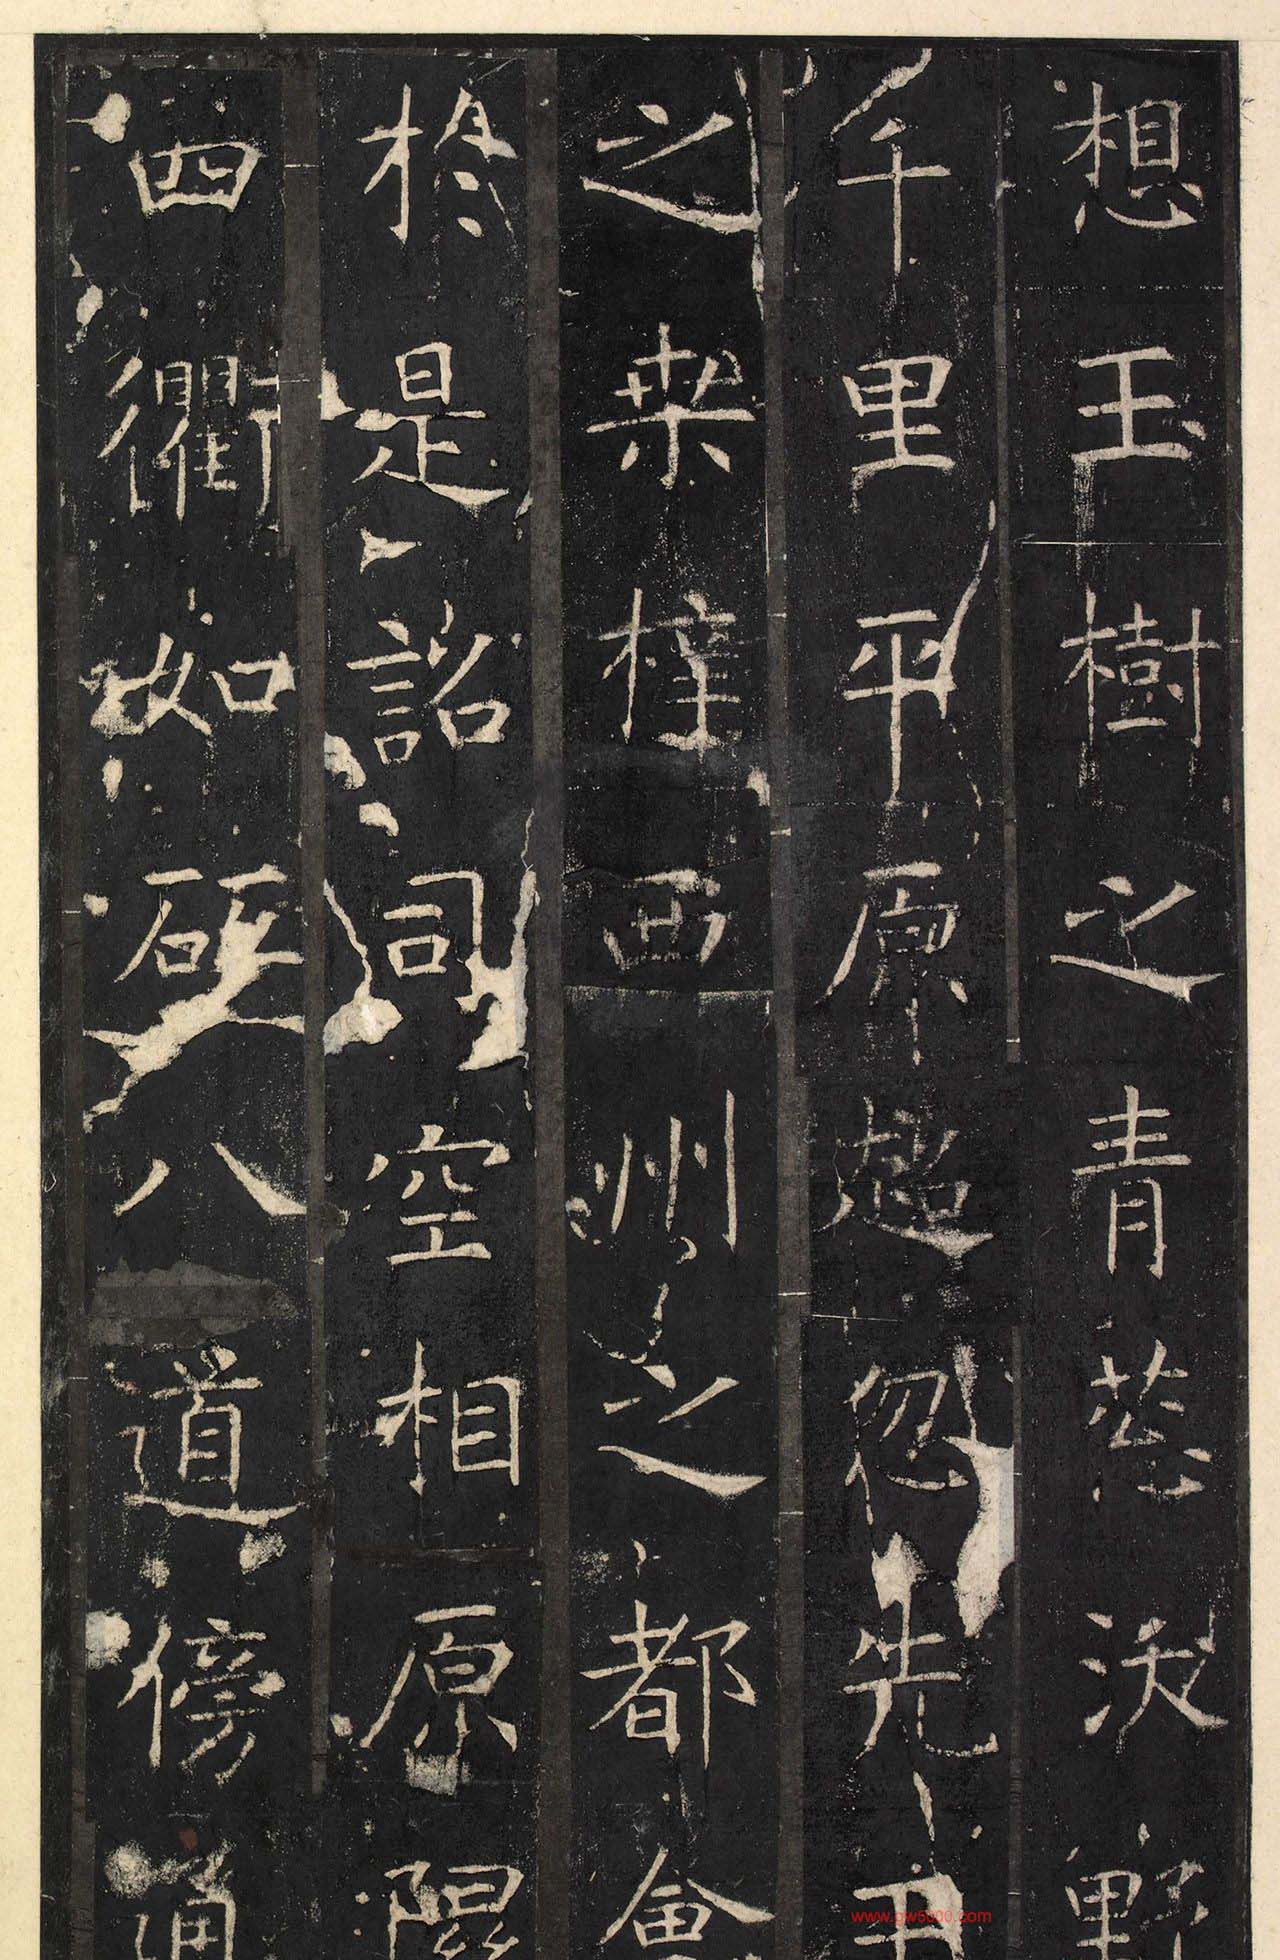 想玉樹之青葱泱野
千里平原超忽先
之桒梓西州之都會
於是詔司空相原隰
四衢如砥八道傍通
www.gw5000.com